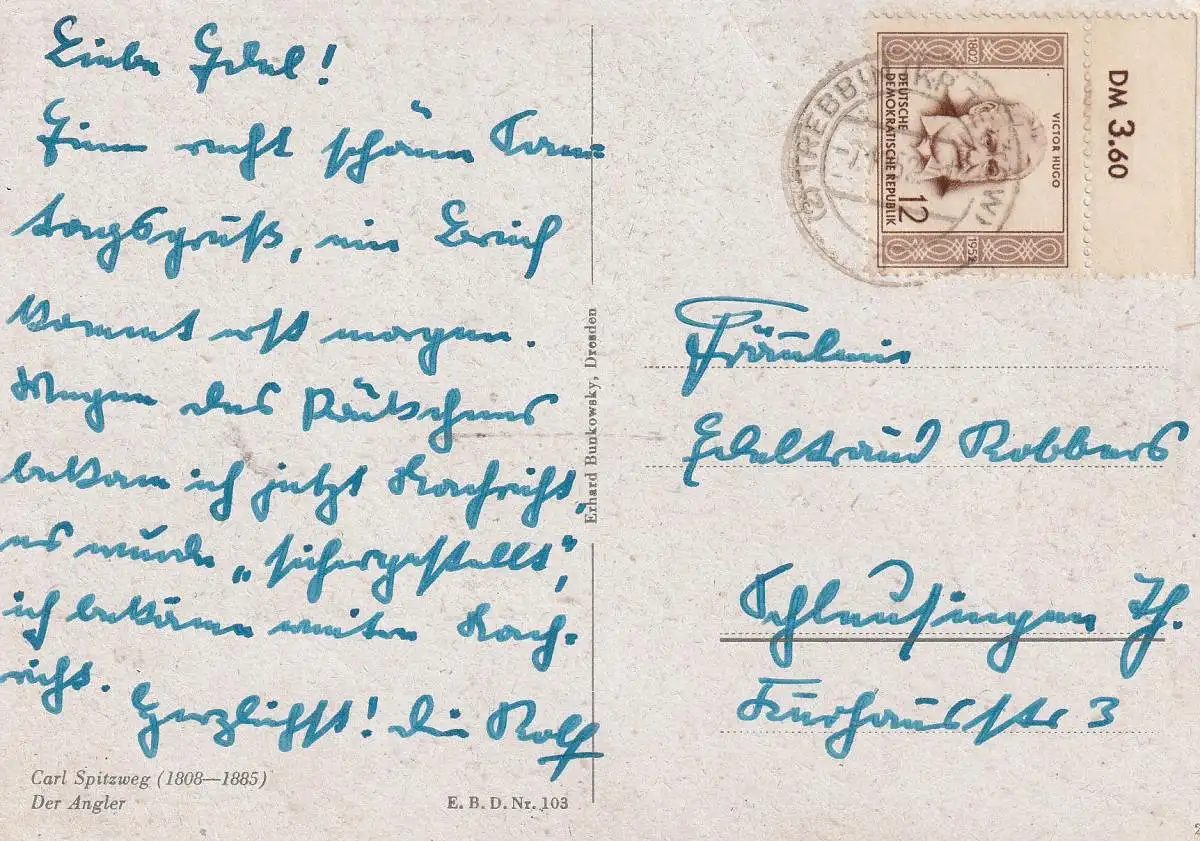 Liebe Edel!
Einen recht schönen Sonn=
tagsgruß, ein Brief
kommt erst morgen.
Wegen des Päckchens
bekam ich jetzt Nachricht,
es wurde „sichergestellt“,
ich bekäme weitere Nach-
richt.
Herzlichst! Dein Rolf
Carl Spitzweg (1808—1885)
Der Angler
E. B. D. Nr. 103
Erhard Bunkowsky, Dresden
TREBBUS
DM 3.60
1802
VICTOR HUGO
DEUTSCHE
DEMOKRATISCHE REPUBLIK
12
1952
Fräulein
Edeltraud Robbers
Schleusingen Th.
Kurhausstr 3
2